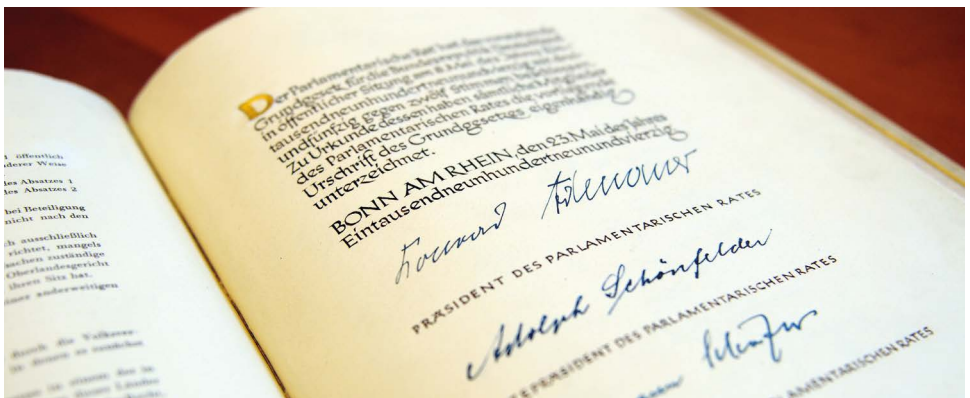 öffentlich
anderer Weise
des Absatzes 1
des Absatzes 2
bei Beteiligung
nicht nach den
ausschließlich
richtet, mangels
zuständige
Oberlandesgericht
ihren Sitz hat.
anderweitigen
durch die
Der Parlamentarische Rat hat das vorstehende
Grundgesetz für die Bundesrepublik Deutschland
in öffentlicher Sitzung am 8. Mai des Jahres Ein-
tausendneunhundertneunundvierzig mit drei-
undfünfzig gegen zwölf Stimmen beschlossen.
Zu Urkunde dessen haben sämtliche Mitglieder
des Parlamentarischen Rates die vorliegende
Urschrift des Grundgesetzes eigenhändig
unterzeichnet.
BONN AM RHEIN, den 23. Mai des Jahres
Eintausendneunhundertneunundvierzig
Konrad Adenauer
PRÄSIDENT DES PARLAMENTARISCHEN RATES
Adolph Schönfelder
PRÄSIDENT DES PARLAMENTARISCHEN RATES
Schäfer
PARLAMENTARISCHEN RATES